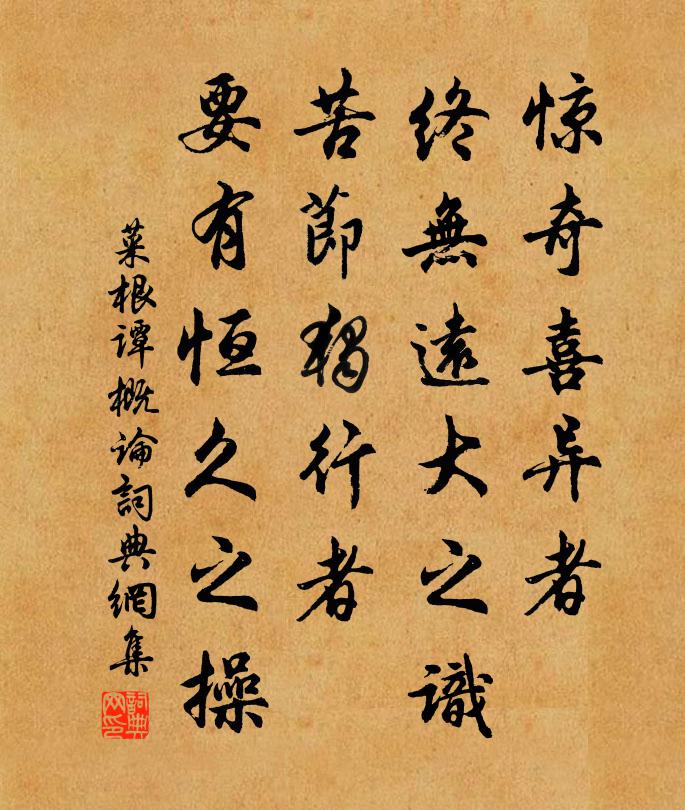 惊奇喜异者
終無遠大之識
苦節獨行者
要有恒久之操
菜根谭概論詞典網集
詞典网印